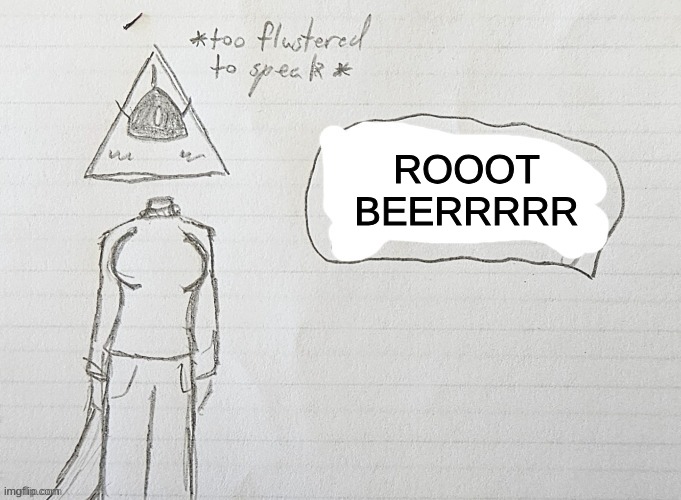 *too flustered
to speak *
ROOOT
BEERRRRR
imgflip.com